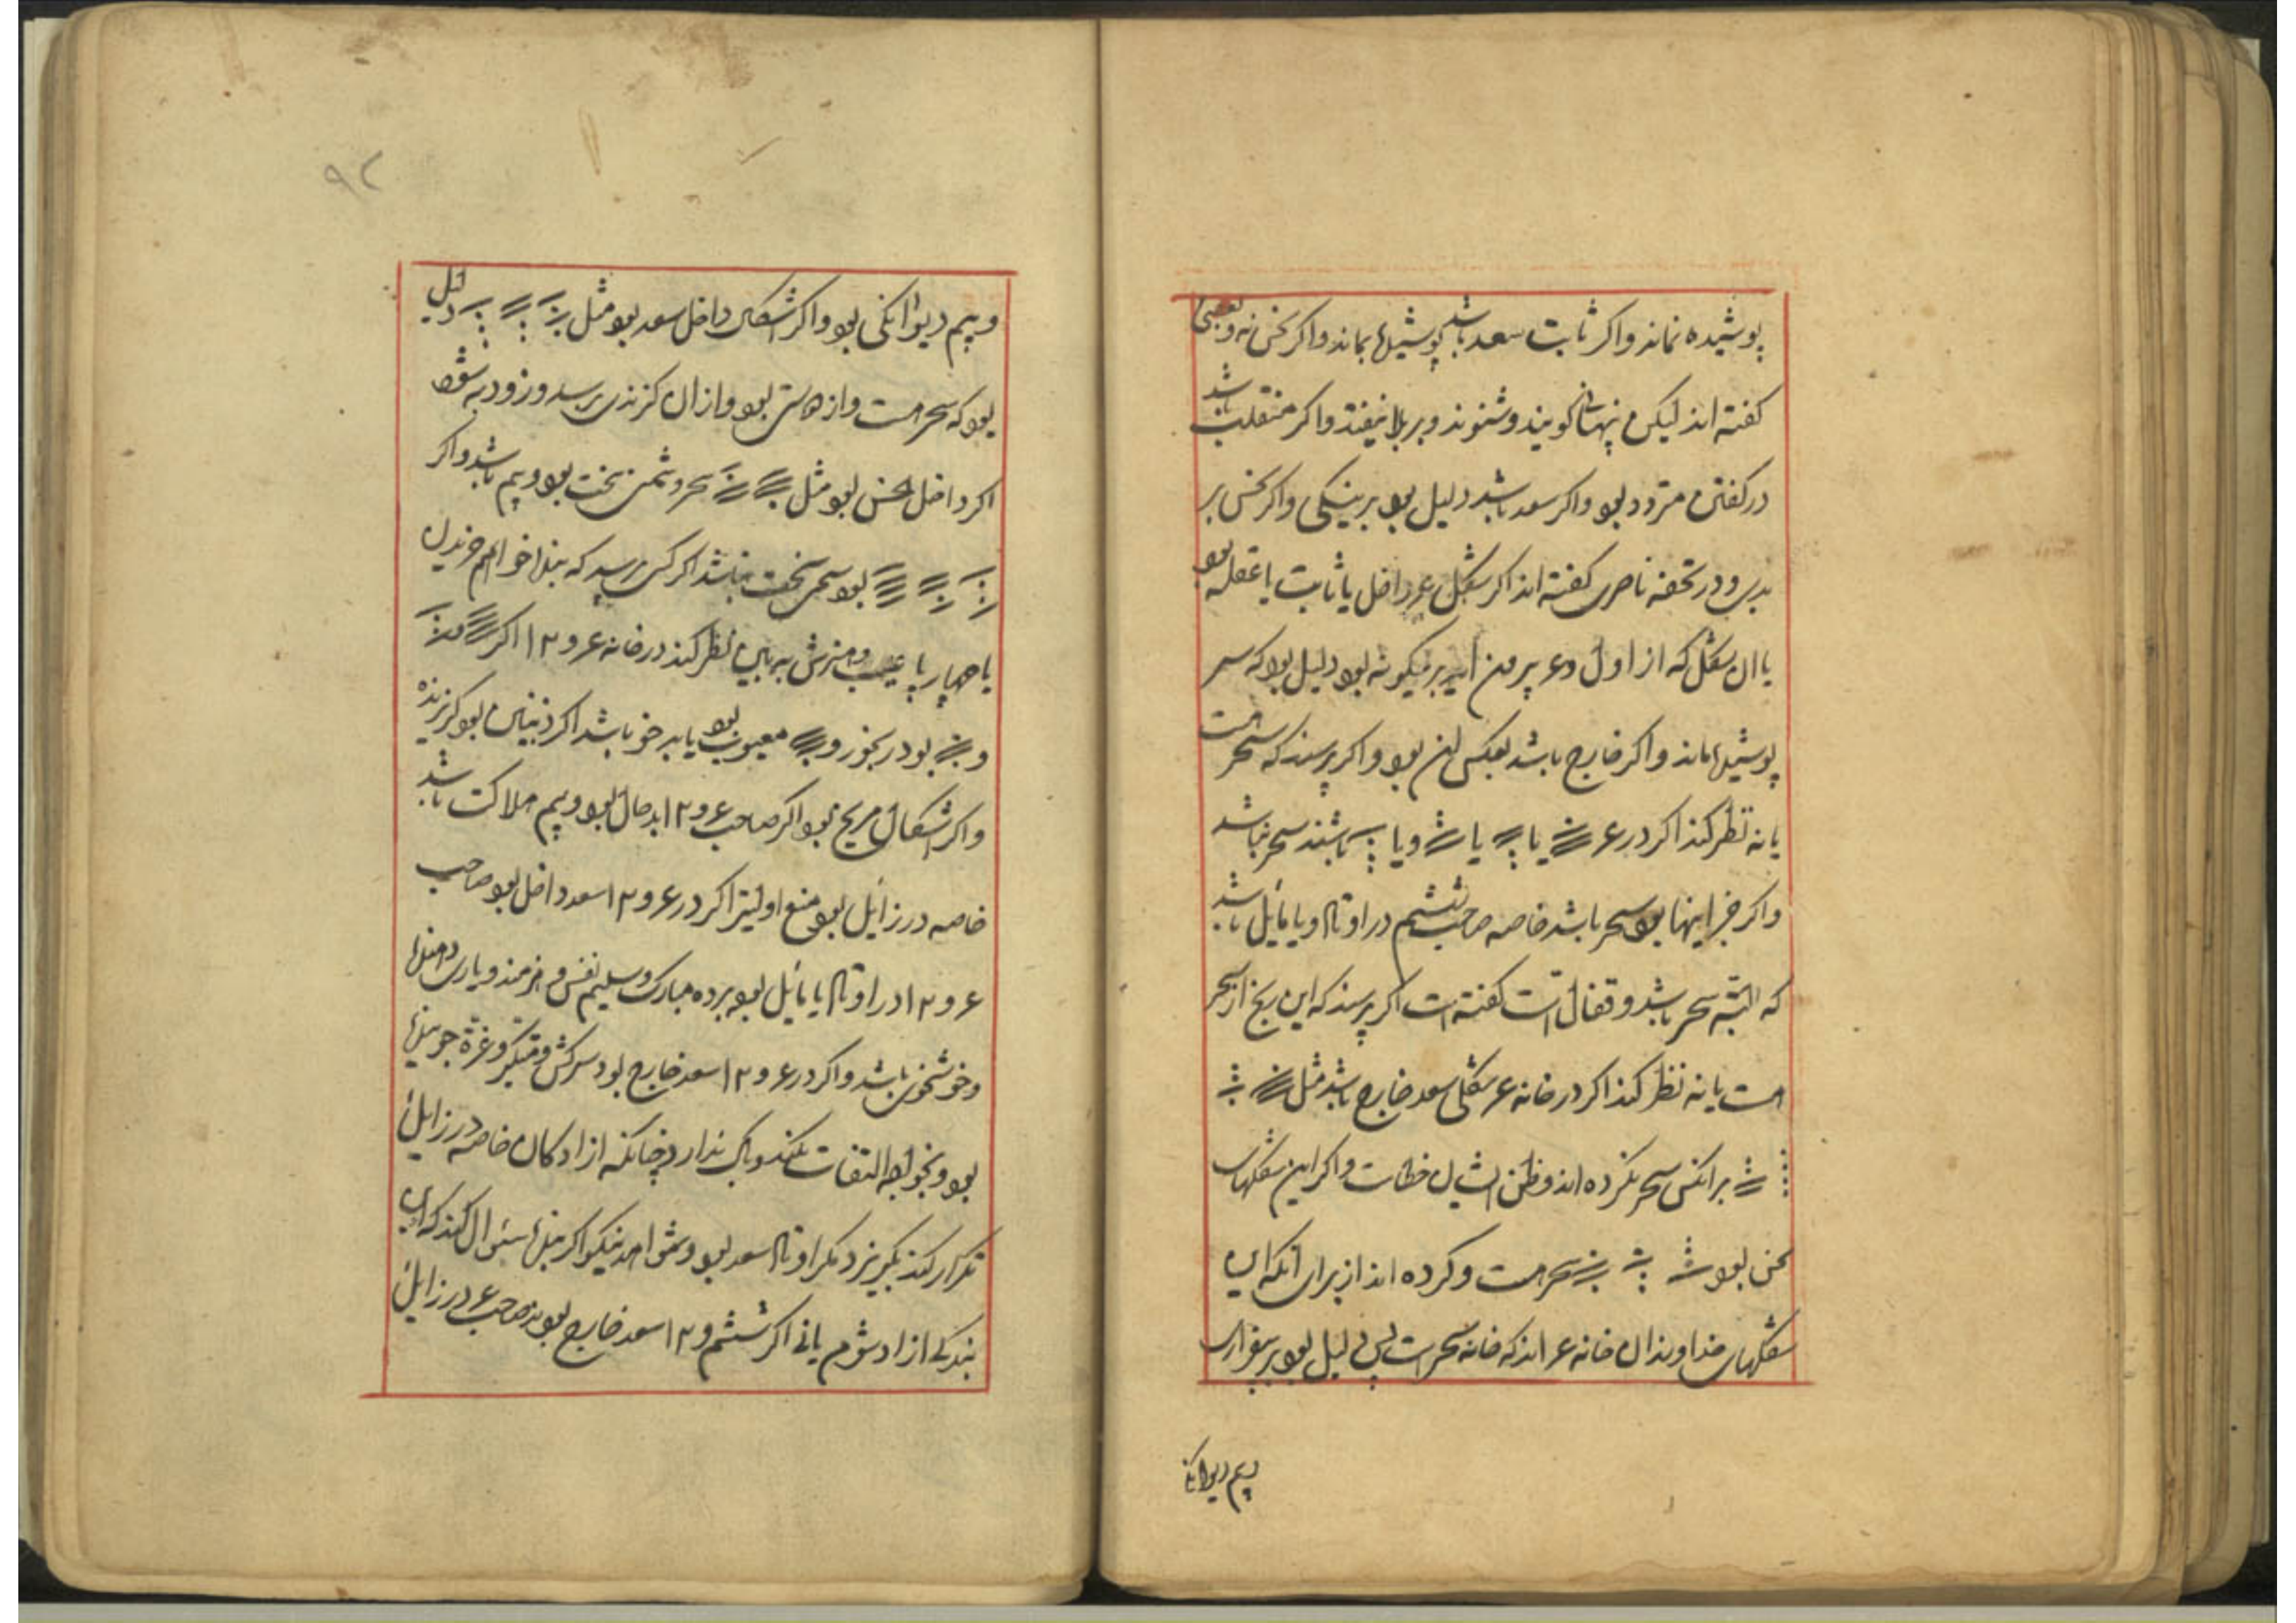 پوشیده نماند و اکر ثابت سعد باشد پوشیدها بماند و اکر نحس نه و بعضی
کفته اند لیکن پنهانی کویند و شنوند و بر بلا نیفتد و اکر منقلب باشد
در کفتن متردد بود و اکر سعد باشد دلیل بود بر نیکی و اکر نحس بر
بدی و در تحفه ناصری کفته اند اکر شکل ۶ داخل یا ثابت یا عقله بود
یا ان شکل که از اول و ۶ بیرون اید برنیکونه بود دلیل بود که سر
پوشیدها ماند و اکر خارج باشد بعکس این بود و اکر پرسند که سحر است
یا نه نظر کند اکر در ۶ یا یا و یا باشند سحر نباشد
و اکر جز اینها بود سحر باشد خاصه صاحب ششم در اوتاد و یا مایل باشد
که البته سحر باشد و قفال است کفته است اکر پرسند که این رنج از سحر
است یا نه نظر کند اکر در خانه ۶ شکلی سعد خارج باشد مثل
بر انکس سحر نکرده اند و ظن ایشان خطاست و اکر این شکلهای
نحس بود سحر است و کرده اند از برای انکه این
شکلهای خداوندان خانه ۶ اند که خانه سحر است پس دلیل بود بر بیقراری
و بیم دیوانکی
۹۲
و بیم دیوانکی بود و اکر اشکال داخل سعد بود مثل دلیل
بود که سحر است و از دوستی بود و از ان کزندی نرسد و زود به شود
اکر داخل نحس بود مثل سحر دشمن سخت بود و بیم باشد و اکر
بود سحر سخت نباشد اکر کسی پرسد که بنده خواهم خریدن
یا چهارپا عیب و هنرش به بین نظر کند در خانه ۶ و ۱۲ اکر
و بود رنجور و معیوب بود یا بدخو باشد اکر ذنبیان بود کریزنده
و اکر اشکال مریخ بود اکر صاحب ۶ و ۱۲ بدحال بود و بیم هلاکت باشد
خاصه در زایل بود منع اولیتر اکر در ۶ و ۱۲ سعد داخل بود صاحب
۶ و ۱۲ در اوتاد یا مایل بود برده مبارک و سلیم نفس و هنرمند و یاری دهنده
و خوشخوی باشد و اکر در ۶ و ۱۲ سعد خارج بود سرکش و متکبر و غره جوینده
بود و بخواجه التفات نکند و باک ندارد چنانکه ازادکان خاصه در زایل
تکرار کند بکریزد مکر اوتاد سعد بود و شواهد نیکو اکر بنده سئوال کند که از این
بندکی ازاد شوم یا نی اکر ششم و ۱۲ سعد خارج بود صاحب ۶ در زایل